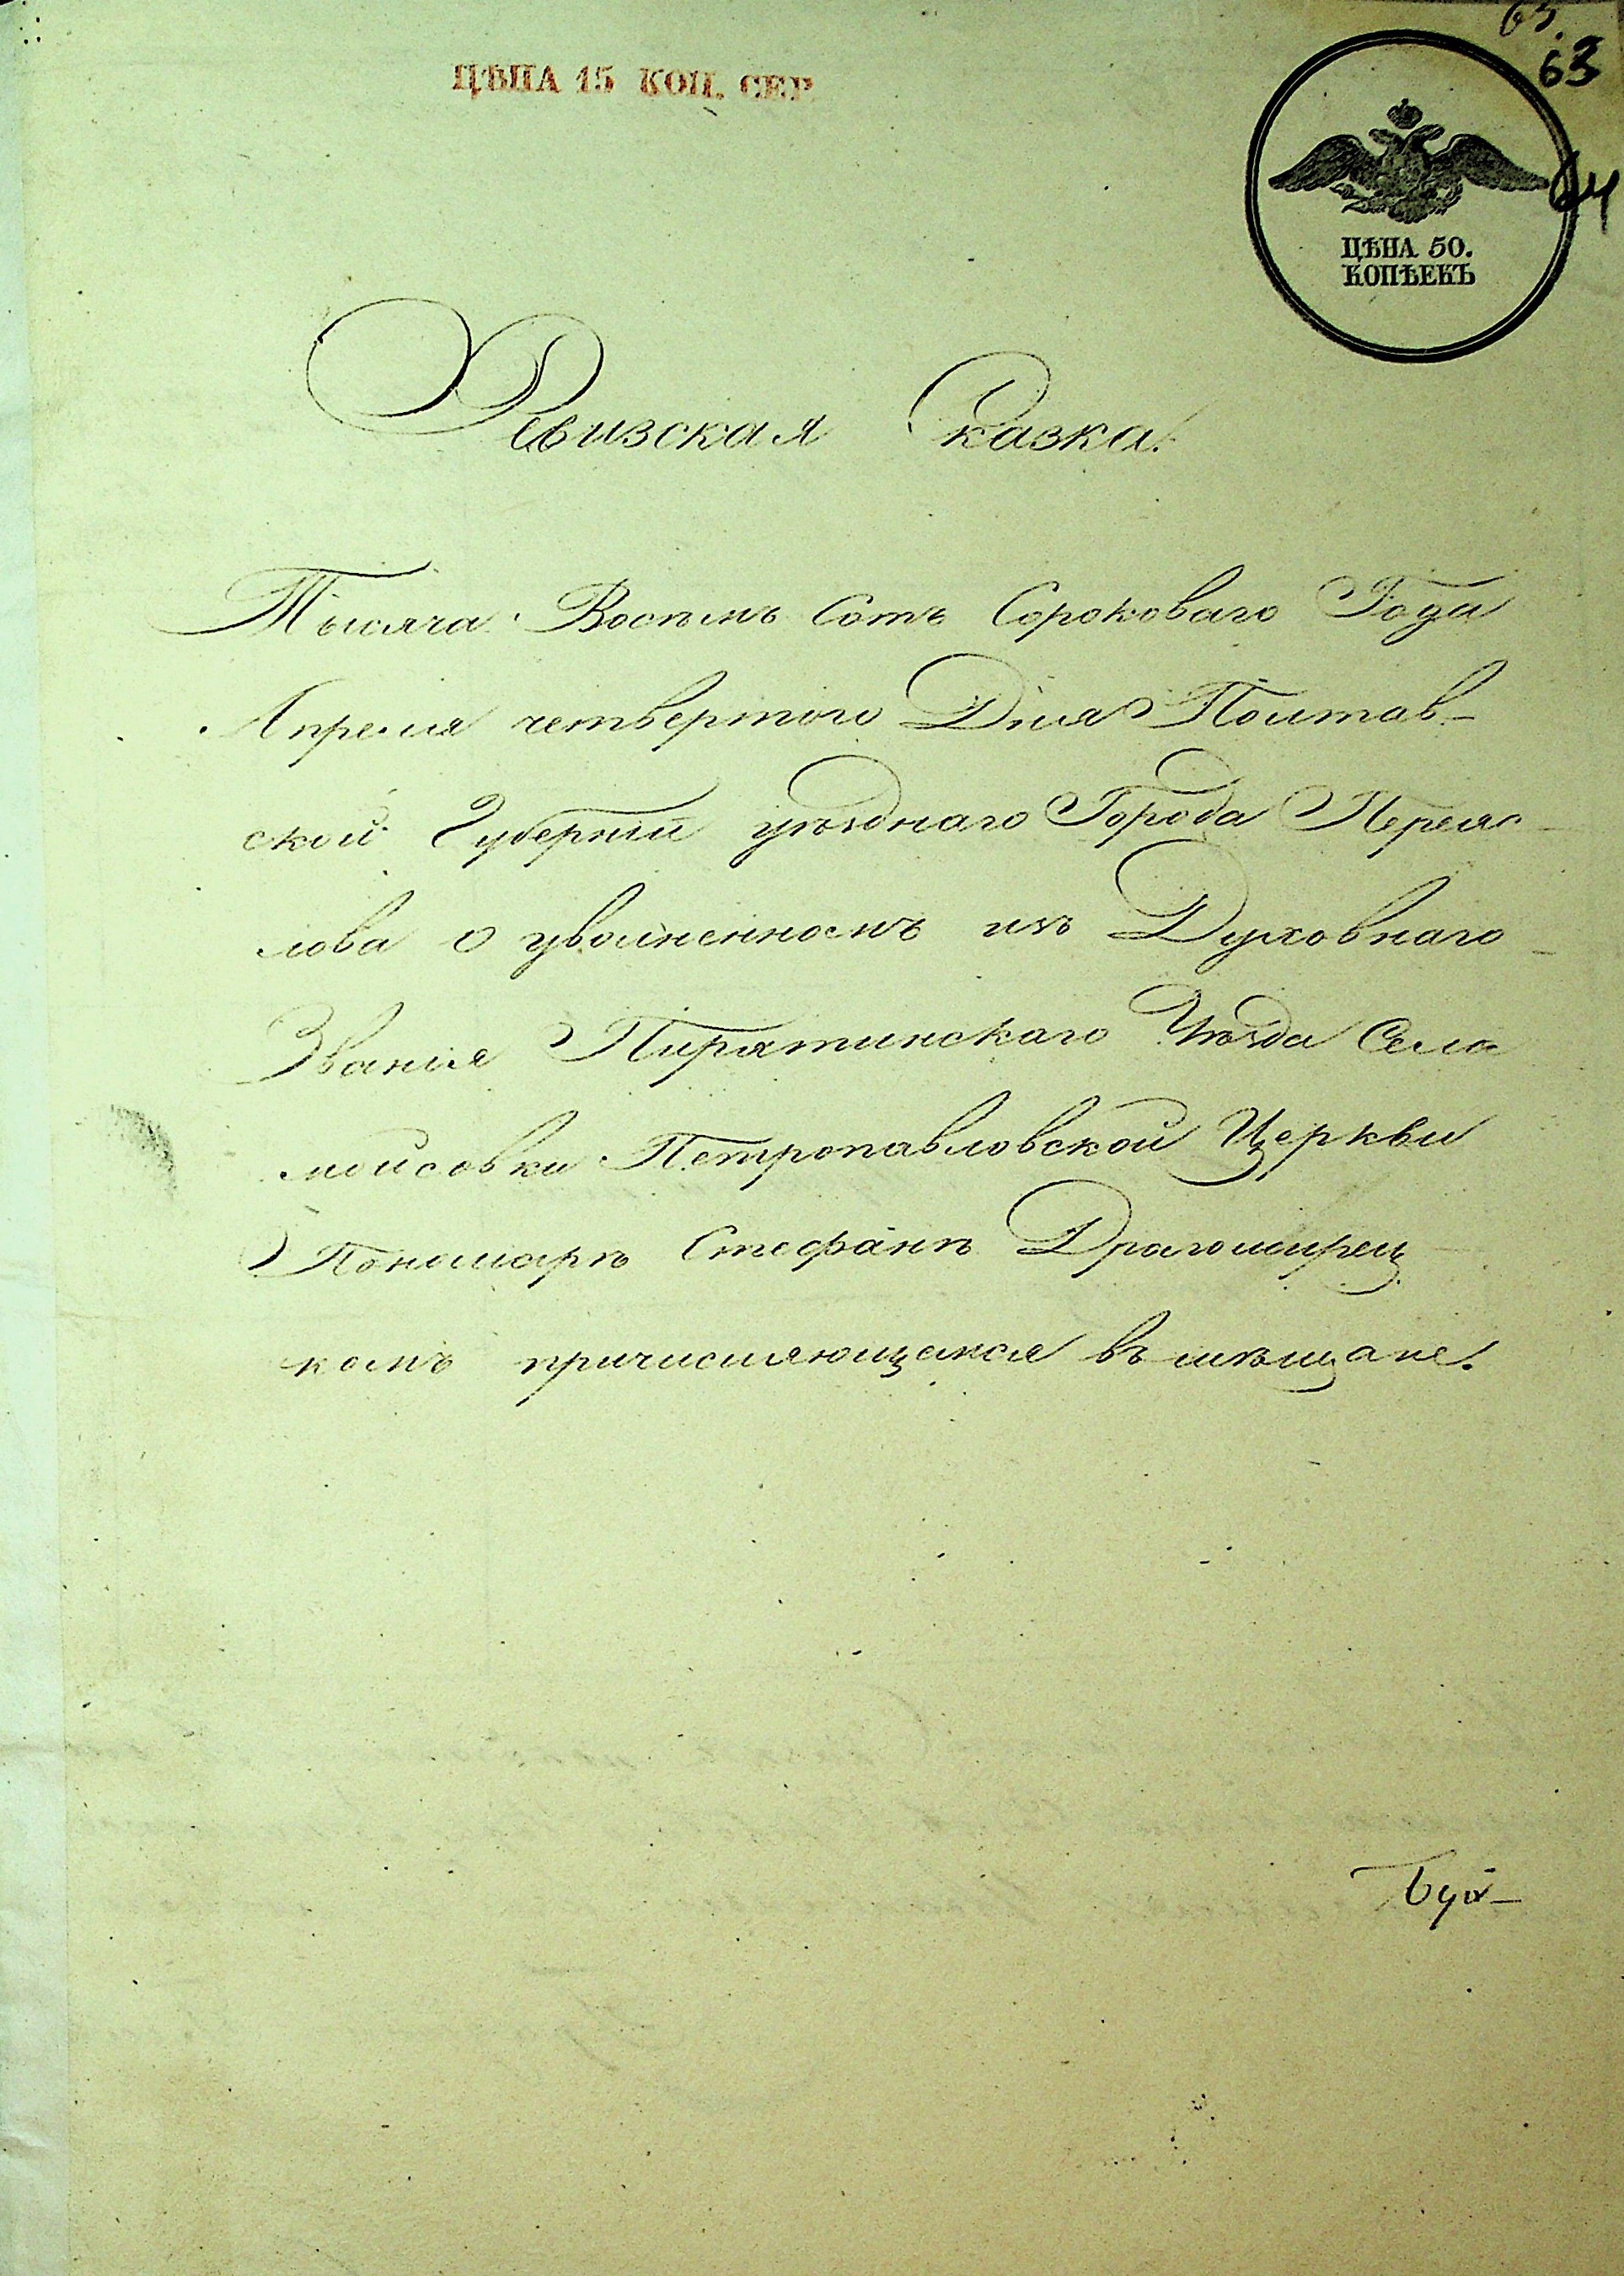 63.
63
ЦѢНА 15 КОП. СЕР.
64
ЦѢНА 50.
КОПѢЕКЪ
Ревизская Сказка.
Тысяча Восемь Сотъ Сороковаго Года
Апреля четвертого Дня Полтав-
ской Губерніи уѣзднаго Города Переяс-
лова о уволненномъ изъ Духовнаго
Званія Пирятинскаго Уѣзда Села
мойсовки Петропавловской Церкви
Пономарѣ Стефанѣ Драгомирец
комъ причисляющемся въ мѣщане.